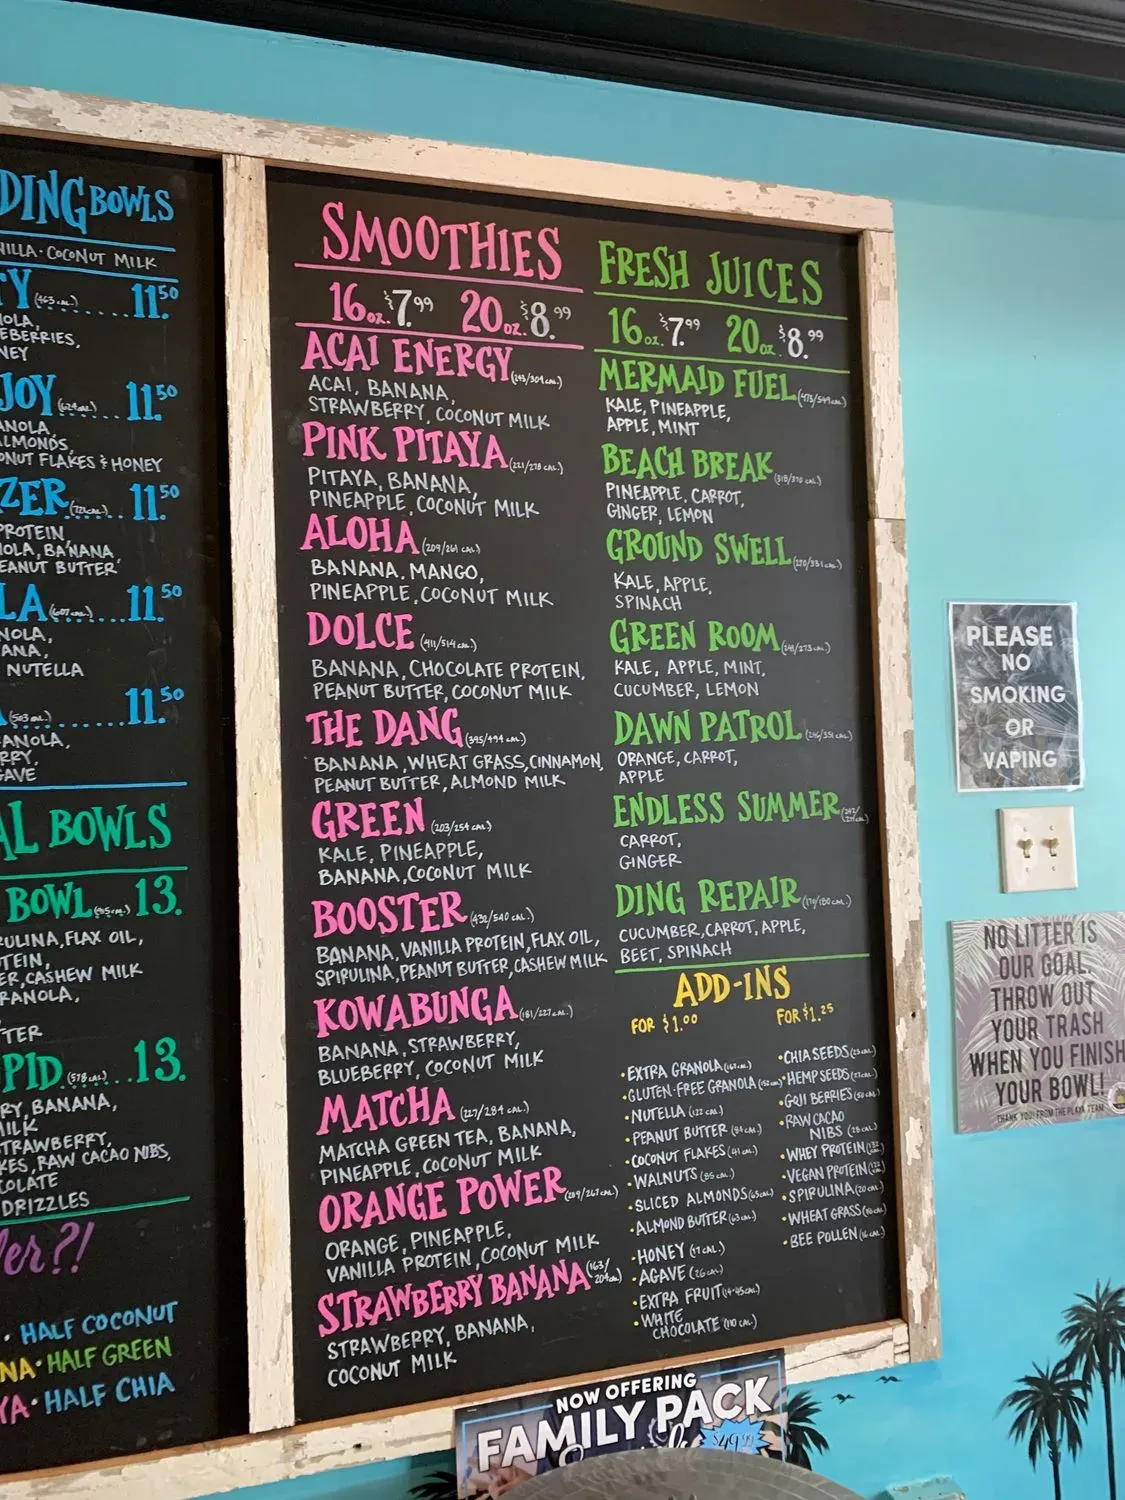 DING BOWLS
NILLA · COCONUT MILK
TY (463 CAL.) 11.50
NOLA,
EBERRIES,
NEY
JOY 11.50
ANOLA,
ALMONDS,
ONUT FLAKES & HONEY
ZER 11.50
PROTEIN,
NOLA, BANANA
PEANUT BUTTER
LA 11.50
NOLA,
ANA,
NUTELLA
(503 CAL.) 11.50
ANOLA,
RRY,
GAVE
AL BOWLS
BOWL 13.
RULINA, FLAX OIL,
TEIN,
ER, CASHEW MILK
RANOLA,
TTER
PID (578 CAL.) 13.
RY, BANANA,
MILK
STRAWBERRY,
KES, RAW CACAO NIBS,
COLATE
DRIZZLES
ler?!
· HALF COCONUT
NA · HALF GREEN
YA · HALF CHIA
SMOOTHIES
16 oz. $7.99 20 oz. $8.99
ACAI ENERGY (243/304 CAL.)
ACAI, BANANA,
STRAWBERRY, COCONUT MILK
PINK PITAYA (221/278 CAL.)
PITAYA, BANANA,
PINEAPPLE, COCONUT MILK
ALOHA (209/261 CAL.)
BANANA, MANGO,
PINEAPPLE, COCONUT MILK
DOLCE (411/514 CAL.)
BANANA, CHOCOLATE PROTEIN,
PEANUT BUTTER, COCONUT MILK
THE DANG (395/494 CAL.)
BANANA, WHEAT GRASS, CINNAMON,
PEANUT BUTTER, ALMOND MILK
GREEN (203/254 CAL.)
KALE, PINEAPPLE,
BANANA, COCONUT MILK
BOOSTER (432/540 CAL.)
BANANA, VANILLA PROTEIN, FLAX OIL,
SPIRULINA, PEANUT BUTTER, CASHEW MILK
KOWABUNGA (181/227 CAL.)
BANANA, STRAWBERRY,
BLUEBERRY, COCONUT MILK
MATCHA (227/284 CAL.)
MATCHA GREEN TEA, BANANA,
PINEAPPLE, COCONUT MILK
ORANGE POWER
ORANGE, PINEAPPLE,
VANILLA PROTEIN, COCONUT MILK
STRAWBERRY BANANA (163/204 CAL.)
STRAWBERRY, BANANA,
COCONUT MILK
FRESH JUICES
16 oz. $7.99 20 oz. $8.99
MERMAID FUEL
KALE, PINEAPPLE,
APPLE, MINT
BEACH BREAK
PINEAPPLE, CARROT,
GINGER, LEMON
GROUND SWELL
KALE, APPLE,
SPINACH
GREEN ROOM
KALE, APPLE, MINT,
CUCUMBER, LEMON
DAWN PATROL
ORANGE, CARROT,
APPLE
ENDLESS SUMMER
CARROT,
GINGER
DING REPAIR
CUCUMBER, CARROT, APPLE,
BEET, SPINACH
ADD-INS
FOR $1.00
· EXTRA GRANOLA
· GLUTEN-FREE GRANOLA
· NUTELLA
· PEANUT BUTTER
· COCONUT FLAKES
· WALNUTS
· SLICED ALMONDS
· ALMOND BUTTER
· HONEY
· AGAVE
· EXTRA FRUIT
· WHITE
CHOCOLATE (110 CAL.)
FOR $1.25
· CHIA SEEDS
· HEMP SEEDS
· GOJI BERRIES
· RAW CACAO
NIBS
· WHEY PROTEIN
· VEGAN PROTEIN
· SPIRULINA
· WHEAT GRASS
· BEE POLLEN
PLEASE
NO
SMOKING
OR
VAPING
NO LITTER IS
OUR GOAL.
THROW OUT
YOUR TRASH
WHEN YOU FINISH
YOUR BOWL!
THANK YOU! FROM THE PLAYA TEAM
NOW OFFERING
FAMILY PACK
$49.99